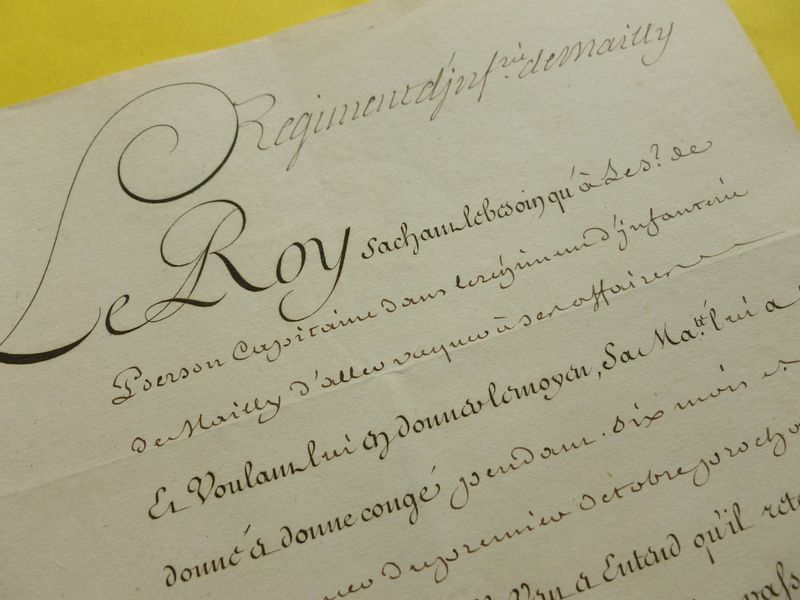 Regiment d'jnf.rie de Mailly
Le Roy sachant le besoin qu'à Le s.r de
Pierson Capitaine dans le régiment d'jnfanterie
de Mailly d'aller vaquer à ses affaires
Et Voulant lui en donner le moyen, Sa Ma.té lui a
donné et donne congé pendant six mois et
du premier octobre procha
a Entend qu'il